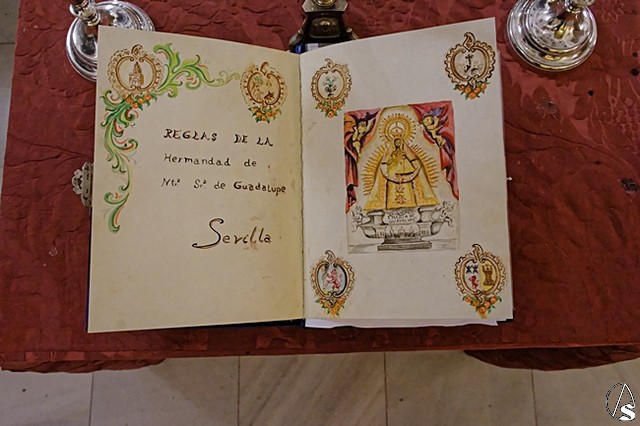 REGLAS DE LA
Hermandad de
Ntª. Srª de Guadalupe
Sevilla